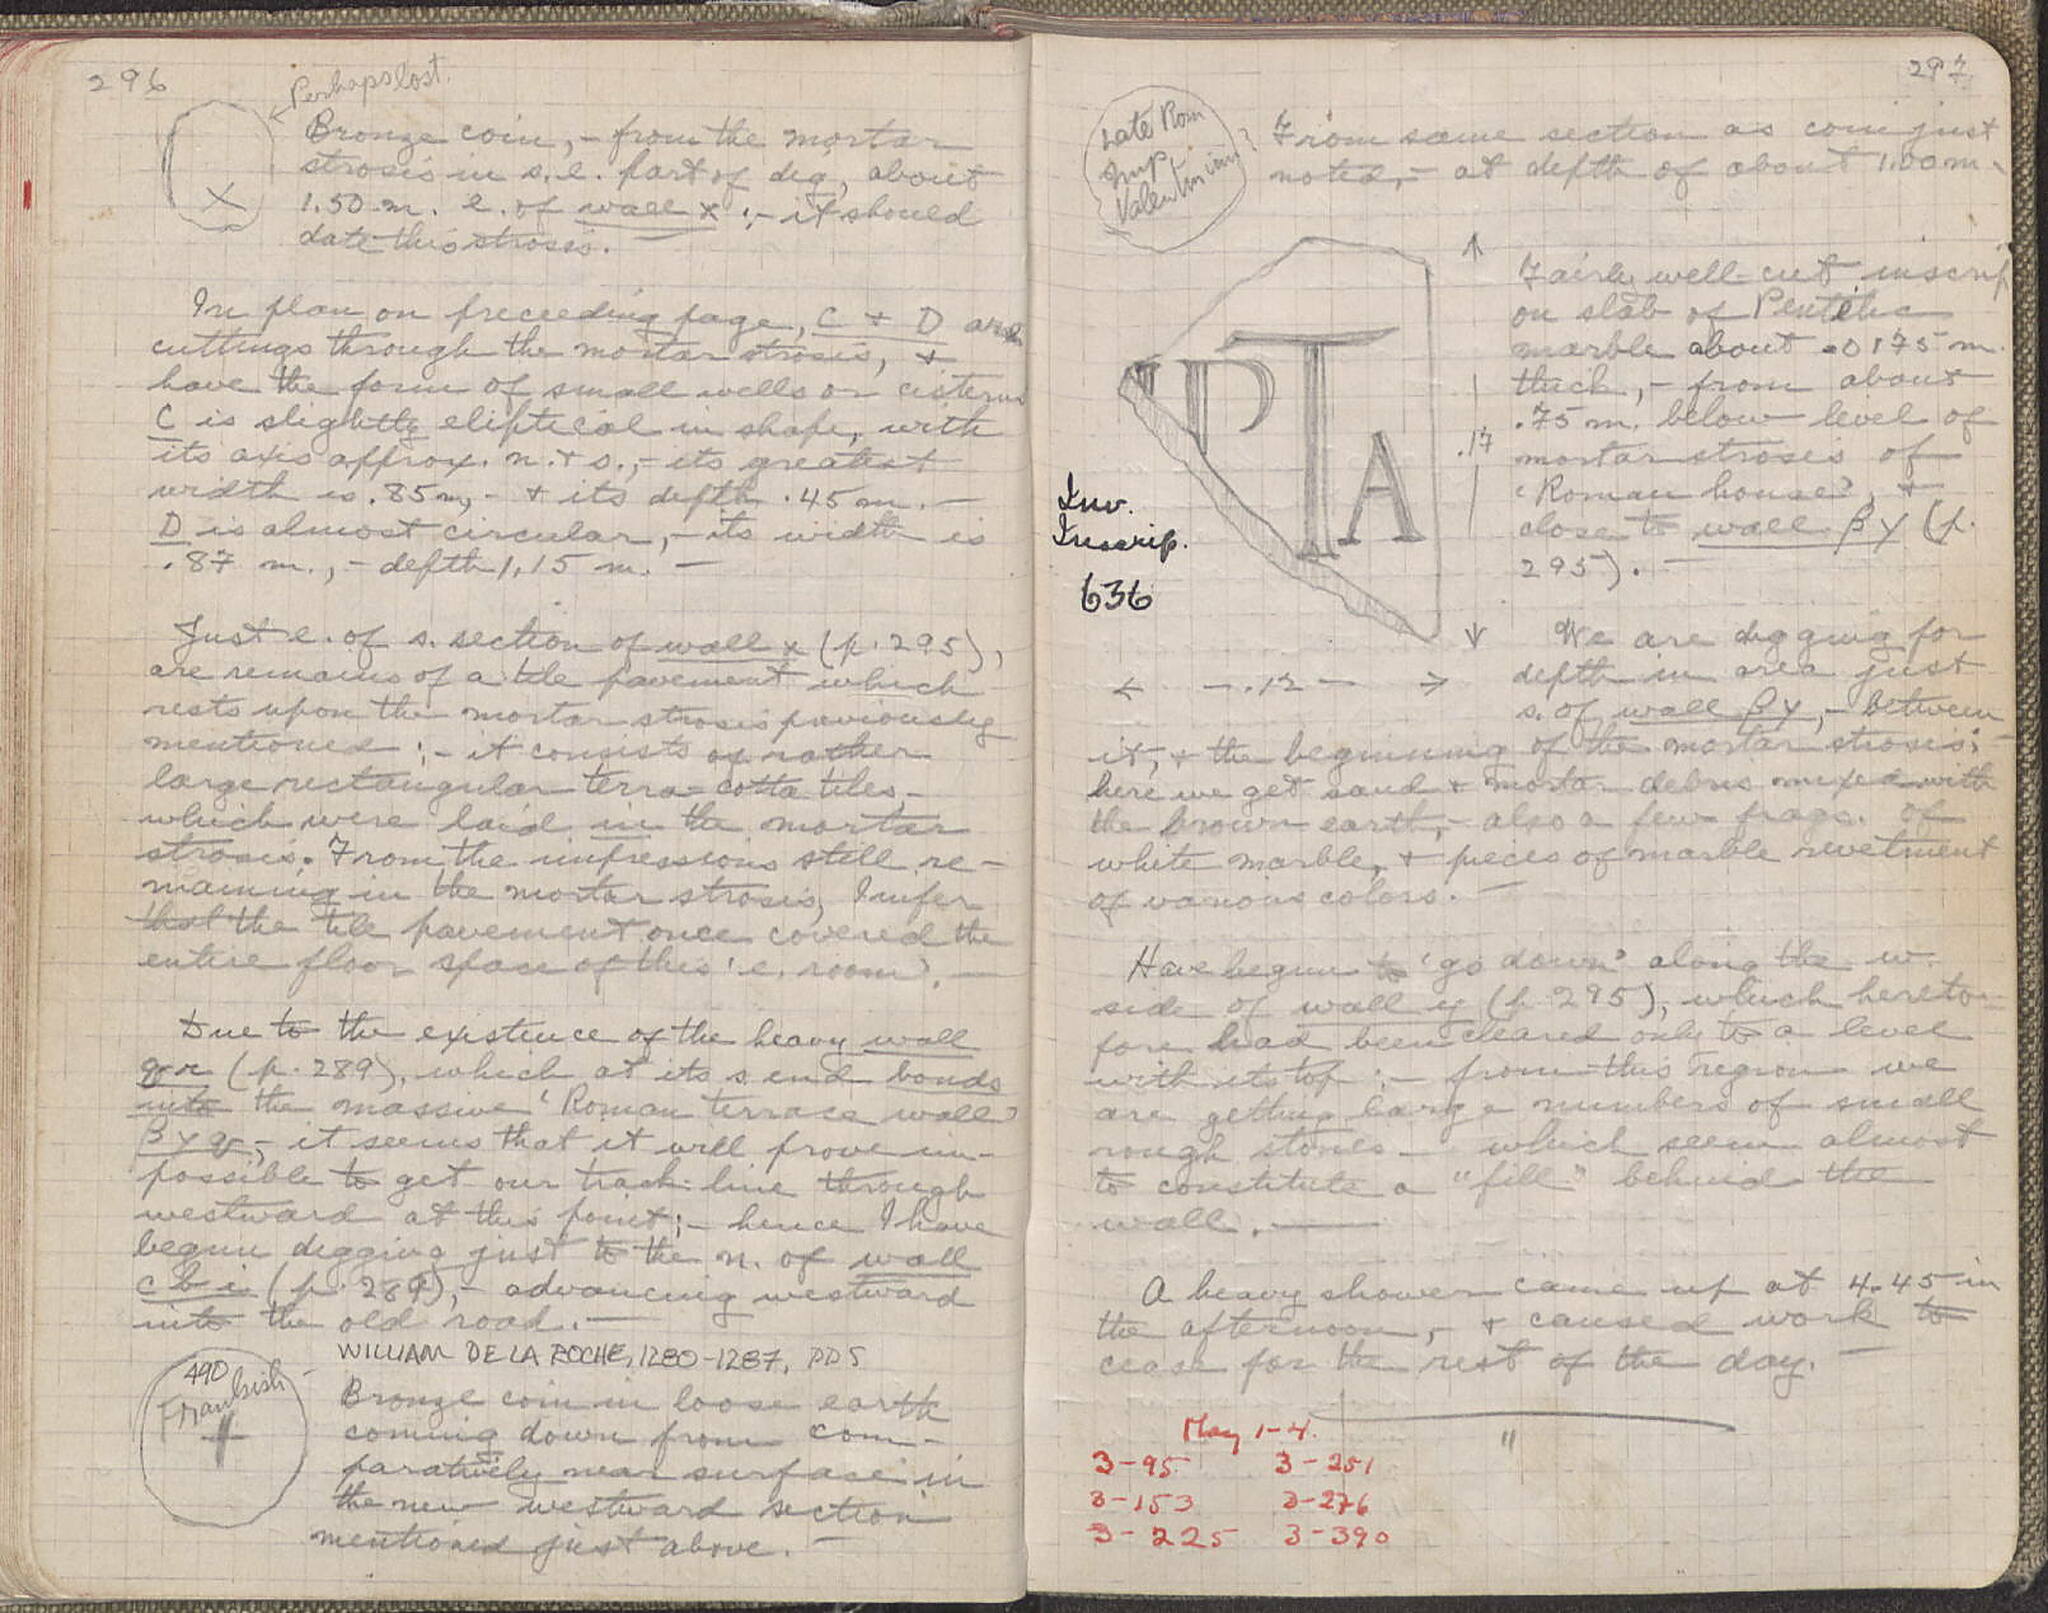 296
Perhaps lost.
Bronze coin, - from the mortar
strosis in s.e. part of dig, about
1.50 m. e. of wall x :- it should
date this strosis. —
X
In plan on preceeding page, C + D are
cuttings through the mortar strosis, +
have the form of small wells or cisterns
C is slightly eliptical in shape, with
its axis approx. n. + s., - its greatest
width is .85 m, - + its depth .45 m. —
D is almost circular, - its width is
.87 m., - depth 1.15 m. —
Just e. of s. section of wall x (p. 295),
are remains of a tile pavement which
rests upon the mortar strosis previously
mentioned :- it consists of rather
large rectangular terra-cotta tiles, -
which were laid in the mortar
strosis. From the impressions still re-
maining in the mortar strosis, I infer
that the tile pavement once covered the
entire floor space of this 'e. room'. —
Due to the existence of the heavy wall
(p. 289), which at its s. end bonds
into the massive 'Roman terrace wall'
- it seems that it will prove im-
possible to get our track line through
westward at this point; - hence I have
begun digging just to the n. of wall
c b i (p. 289), - advancing westward
into the old road. —
WILLIAM DE LA ROCHE, 1280-1287, PD5
490
Frankish
Bronze coin in loose earth
coming down from com-
paratively near surface in
the new westward section
mentioned just above. —
297
Late Rom
Imp
Valentinian?
From same section as coin just
noted, - at depth of about 1.00 m.
PTA
.17
.12
Inv.
Inscrip.
636
Fairly well-cut inscrip
on slab of Pentelic
marble about .0175 m.
thick, - from about
.75 m. below level of
mortar strosis of
'Roman house', +
close to wall βγ (p.
295). —
We are digging for
depth in area just
s. of wall βγ, - between
it, + the beginning of the mortar strosis: -
here we get sand + mortar debris mixed with
the brown earth, - also a few frags. of
white marble, + pieces of marble revetment
of various colors. —
Have begun to 'go down' along the w.
side of wall y (p. 295), which hereto-
fore had been cleared only to a level
with its top :- from this region we
are getting large numbers of small
rough stones — which seem almost
to constitute a "fill" behind the
wall. —
A heavy shower came up at 4.45 in
the afternoon, - + caused work to
cease for the rest of the day. —
"
May 1-4.
3-95 3-251
3-153 3-276
3-225 3-390